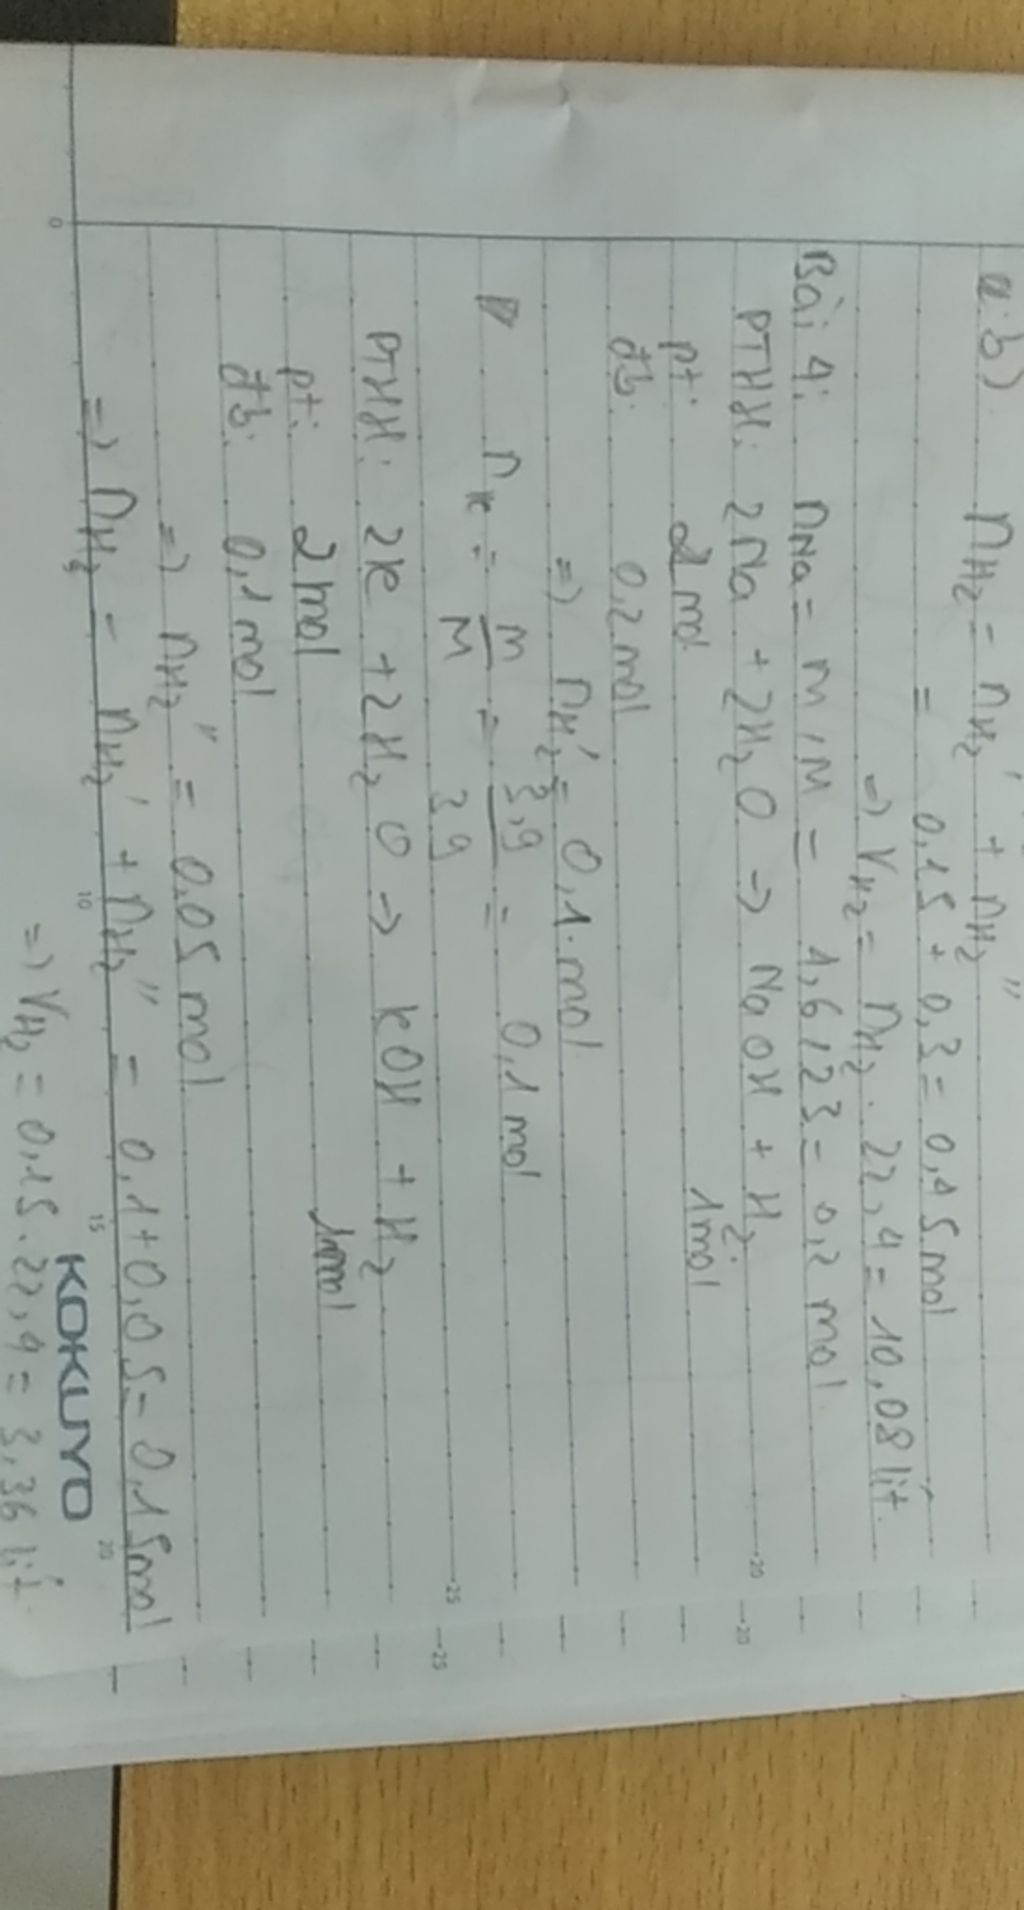 a.b) nH₂ = nH₂' + nH₂''
= 0,15 + 0,3 = 0,45 mol
=> VH₂ = nH₂ . 22,4 = 10,08 lít.
Bài 4: nNa = m / M = 4,6 / 23 = 0,2 mol.
PTHH: 2Na + 2H₂O -> NaOH + H₂
pt: 2 mol 1 mol
đb: 0,2 mol
=> nH₂' = 0,1 mol
nK = m/M = 3,9/39 = 0,1 mol
PTHH: 2K + 2H₂O -> KOH + H₂
pt: 2 mol 1 mol
đb: 0,1 mol
=> nH₂'' = 0,05 mol
=> nH₂ = nH₂' + nH₂'' = 0,1 + 0,05 = 0,15 mol
=> VH₂ = 0,15 . 22,4 = 3,36 lít.
KOKUYO
0 10 15 20
20
20
25
25